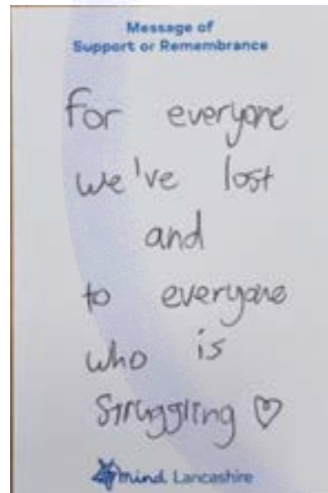 Message of
Support or Remembrance
For everyone
we've lost
and
to everyone
who is
struggling ♡
mind Lancashire